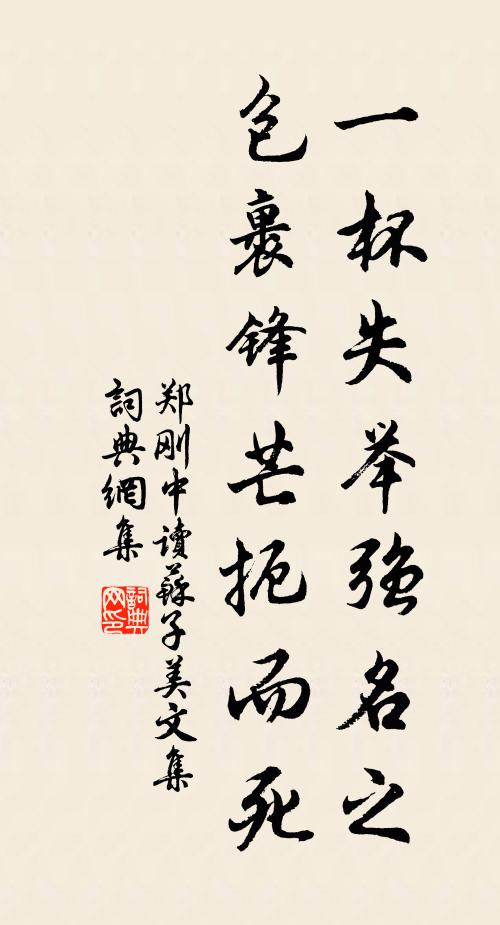 一杯失举强名之
包裹锋芒扼而死
郑刚中读蘇子美文集
詞典網集
詞典网印